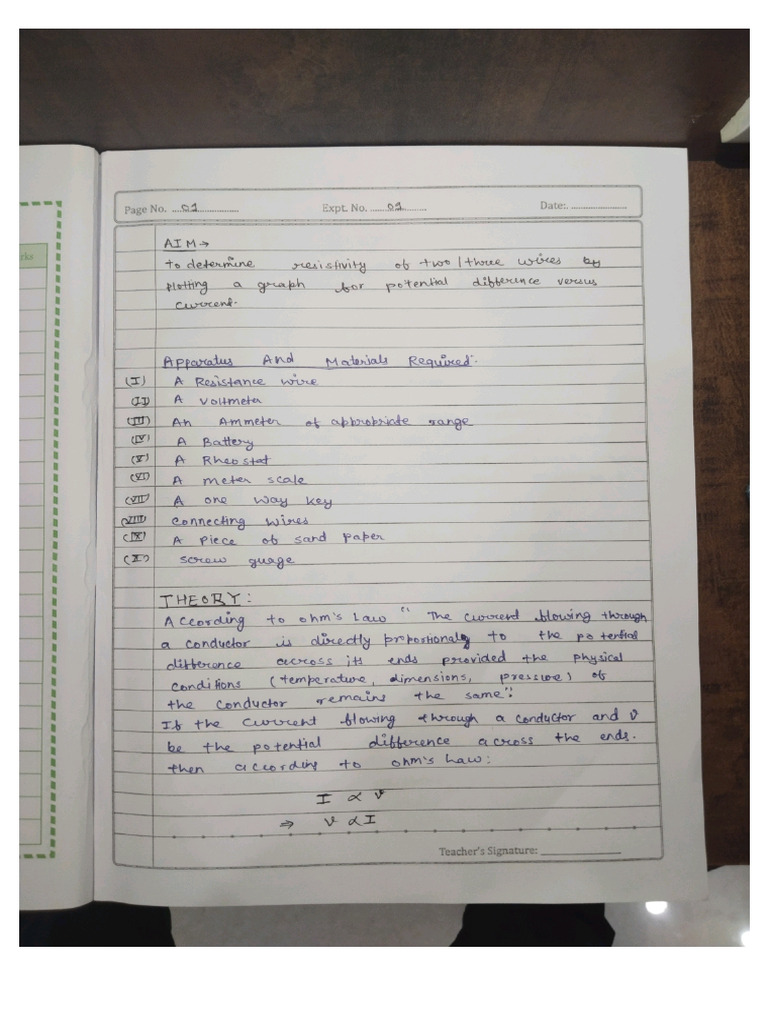 rks
Page No. ....01.................. Expt. No. .......01......... Date:. ....................
AIM →
To determine resistivity of two / three wires by
plotting a graph for potential difference versus
current.
Apparatus And Materials Required:
(I) A Resistance wire
(II) A Voltmeter
(III) An Ammeter of appropriate range
(IV) A Battery
(V) A Rheostat
(VI) A meter scale
(VII) A one way key
(VIII) connecting wires
(IX) A Piece of sand paper
(X) screw guage
THEORY:
According to ohm's Law " The current flowing through
a conductor is directly proportionaly to the potential
difference across its ends provided the physical
conditions (temperature, dimensions, pressure) of
the conductor remains the same".
If the current flowing through a conductor and V
be the potential difference across the ends.
then according to ohm's Law:
I ∝ V
⇒ V ∝ I
Teacher's Signature: _______________